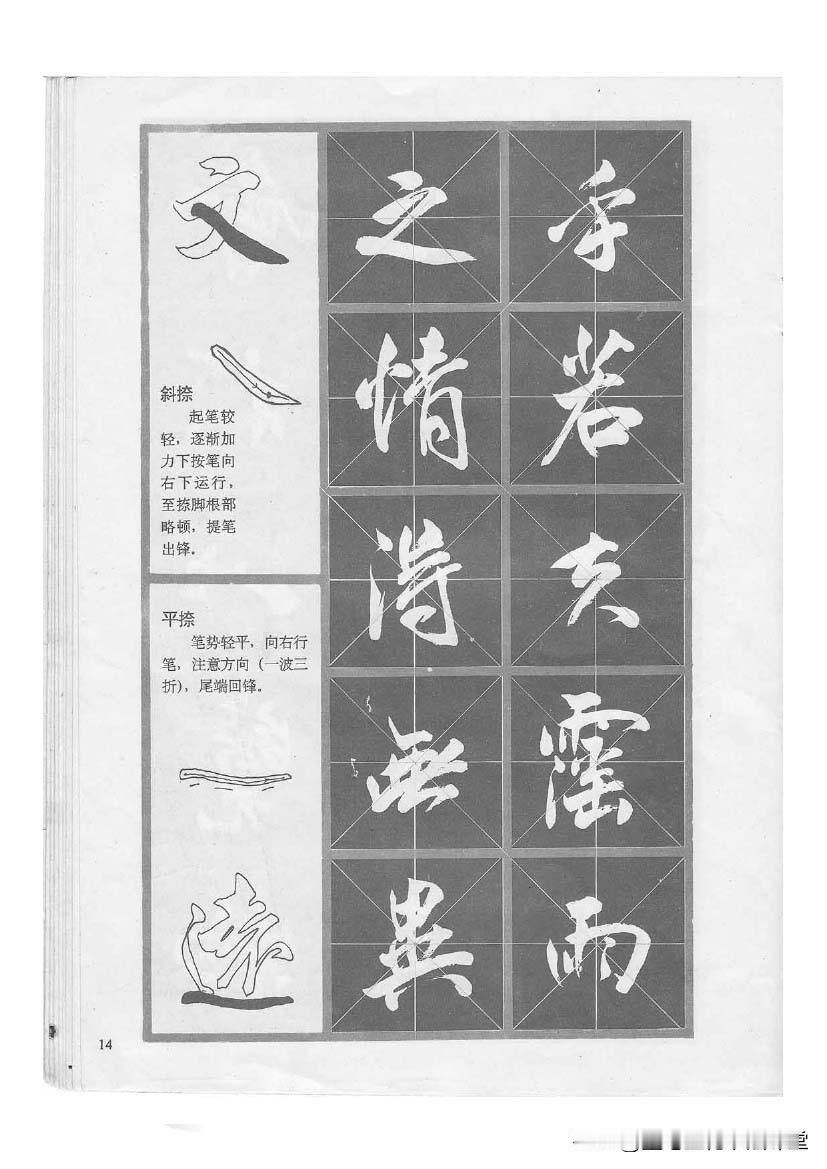 文
斜捺
起笔较
轻，逐渐加
力下按笔向
右下运行，
至捺脚根部
略顿，提笔
出锋。
平捺
笔势轻平，向右行
笔，注意方向（一波三
折），尾端回锋。
遠
之
情
得
無
異
乎
若
夫
霪
雨
14